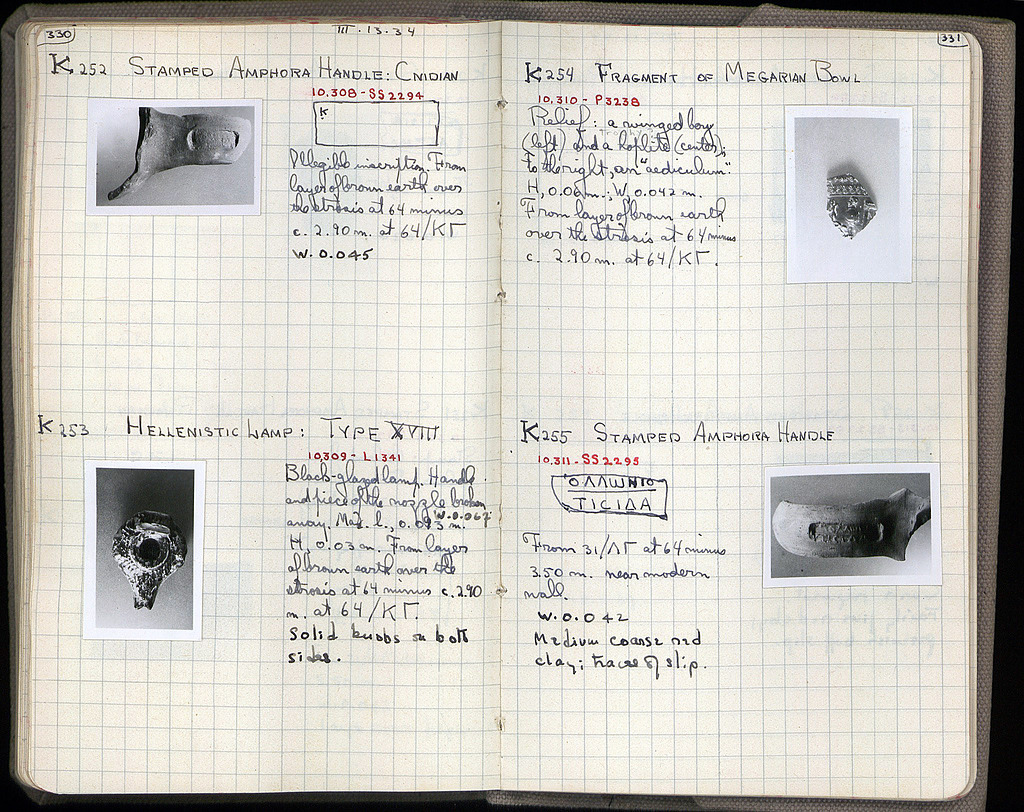 330
III.13.34
K252 STAMPED AMPHORA HANDLE: CNIDIAN
10,308-SS2294
K
Illegible inscription. From
layer of brown earth over
the strosis at 64 minus
c. 2.90 m. at 64/ΚΓ
W. 0.045
K253 HELLENISTIC LAMP: TYPE XVIII
10,309-L1341
Black-glazed lamp. Handle
and piece of the nozzle broken
away. Max. l., 0.093 m. W. 0.067
H, 0.03 m. From layer
of brown earth over the
strosis at 64 minus c. 2.90
m. at 64/ΚΓ.
Solid knobs on both
sides.
331
K254 FRAGMENT OF MEGARIAN BOWL
10,310-P3238
Relief: a winged boy
(left) and a hoplite (center);
to the right, an "aediculum".
H, 0.06 m.; W, 0.042 m.
From layer of brown earth
over the strosis at 64 minus
c. 2.90 m. at 64/ΚΓ.
K255 STAMPED AMPHORA HANDLE
10,311-SS2295
ΟΛΛΩΝΙΟ
ΤΙCΙΔΑ
From 31/ΛΓ at 64 minus
3.50 m. near modern
wall.
W. 0.042
Medium coarse red
clay; traces of slip.